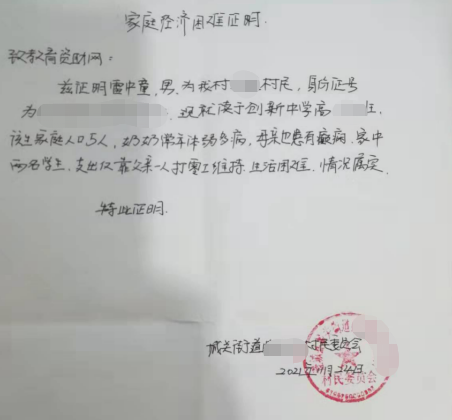 家庭经济困难证明
致教商资助网：
兹证明雷中童，男，为我村 村民，身份证号
为 ，现就读于创新中学高 生，
该生家庭人口5人，奶奶常年体弱多病，母亲也患有癫病，家中
两名学生，支出仅靠父亲一人打零工维持，生活困难，情况属实。
特此证明。
城关街道 村民委员会
2021年 月24日
村民委员会